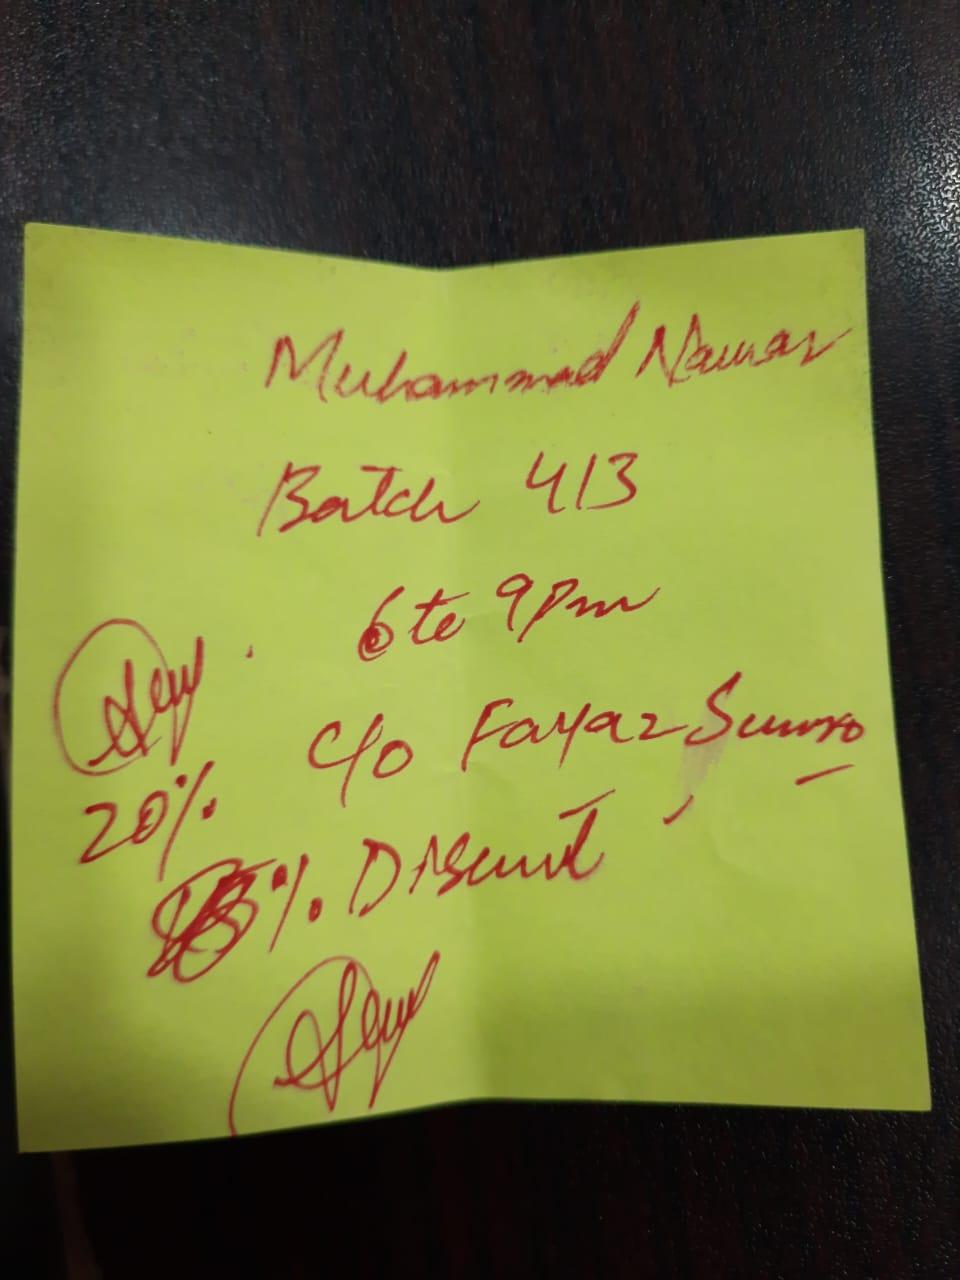 Muhammad Nawaz
Batch 413
6 to 9 Pm
C/o Fayaz Sumro
20%
% Discount